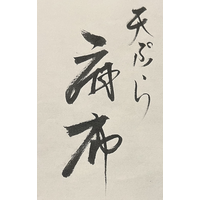 天ぷら
麻布